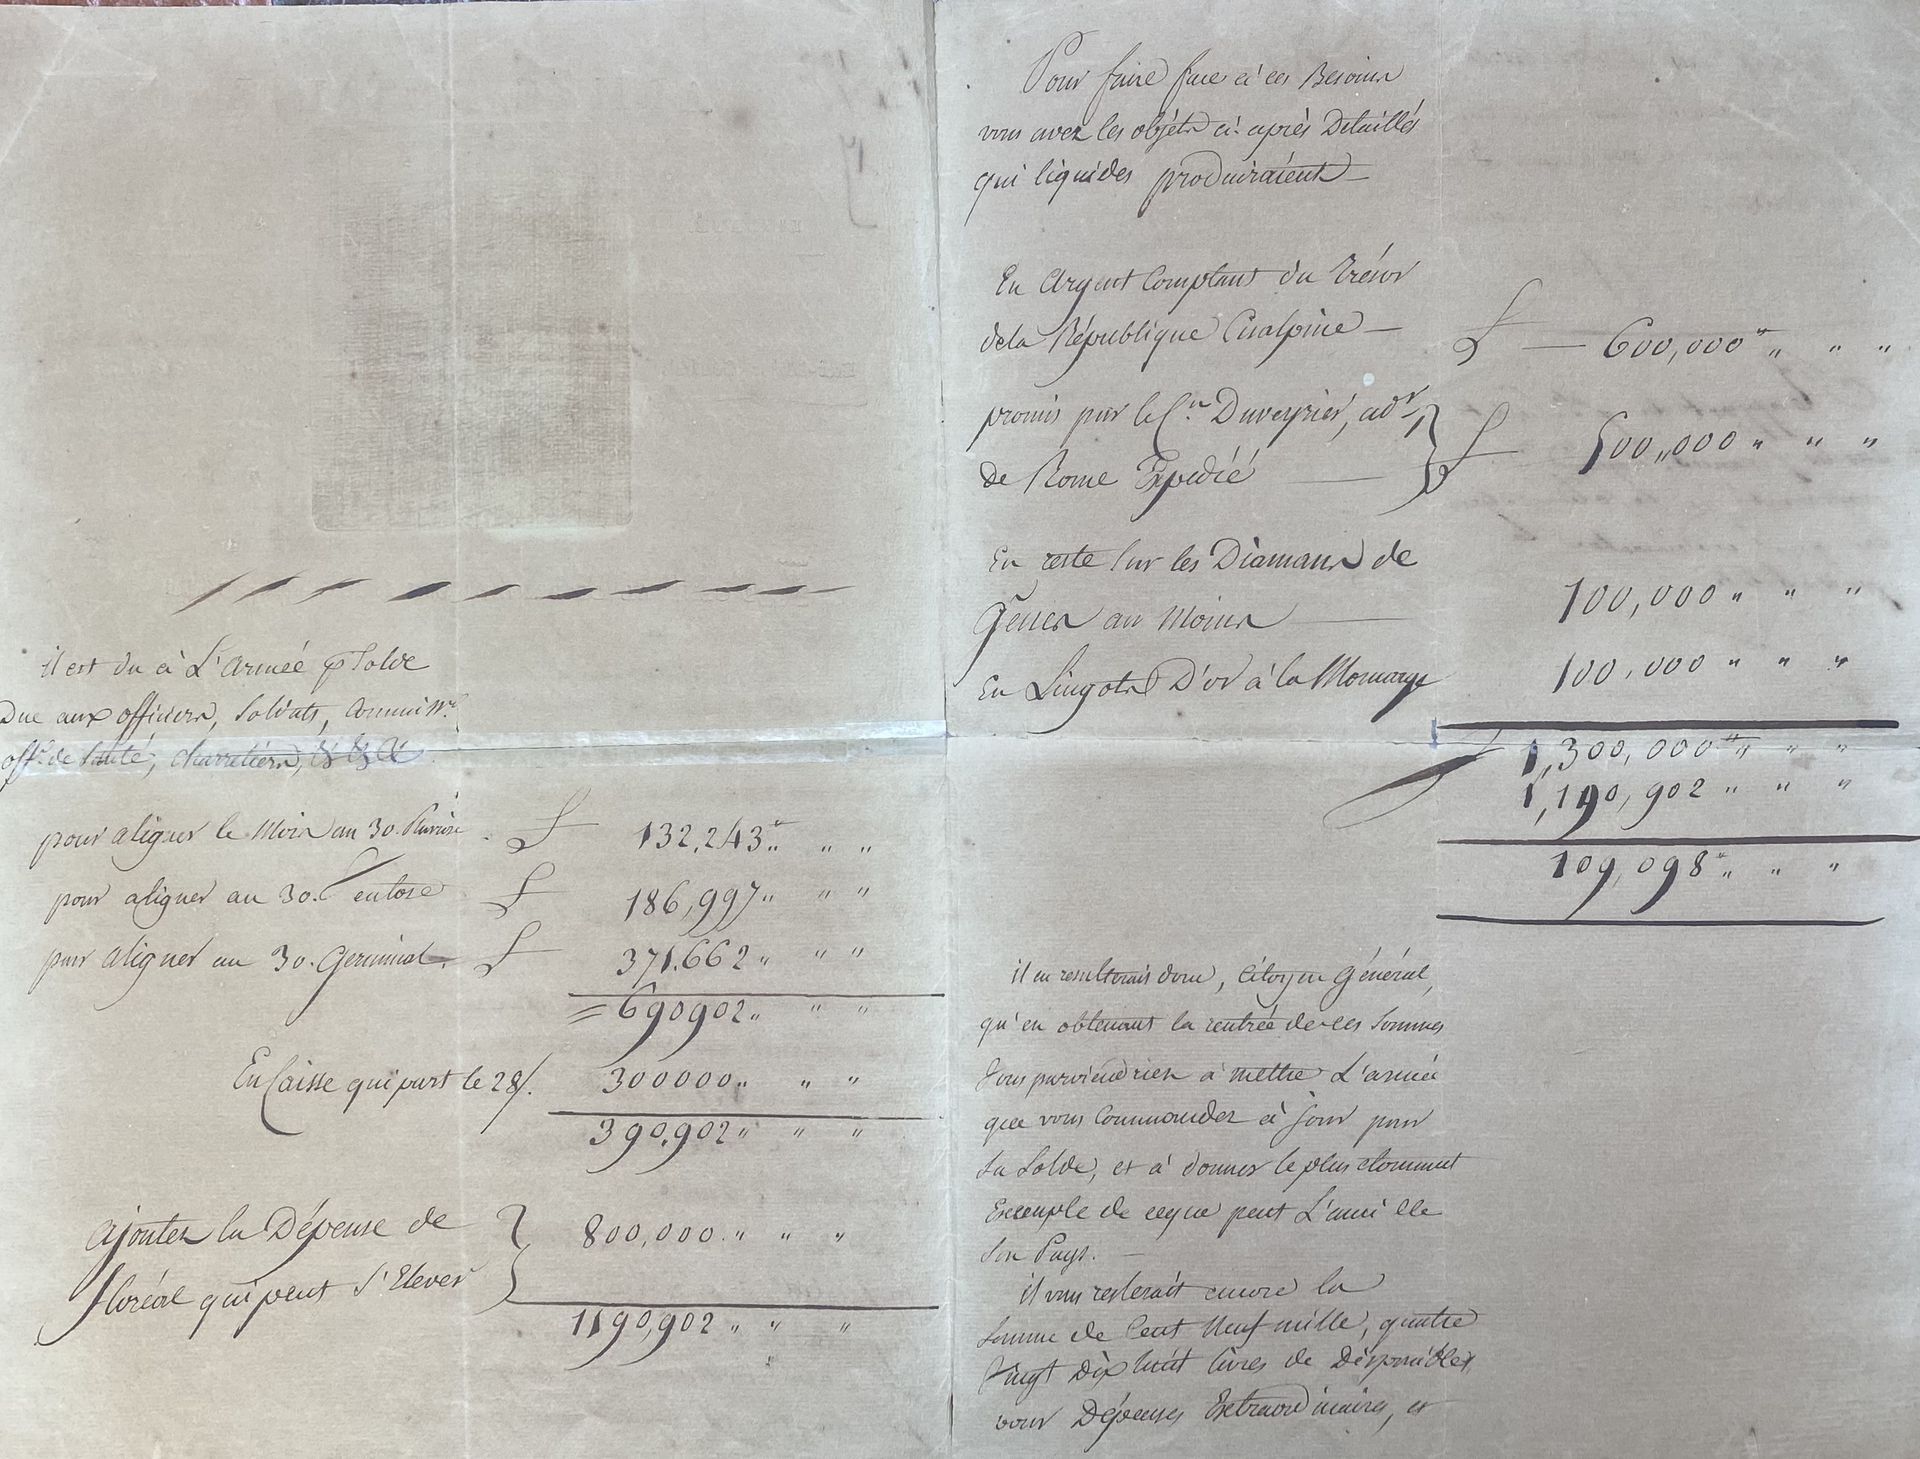 il est du à L'armée p solde
Due aux officiers, soldats, Commiss.res
off. de santé, charretiers, & & &
pour aligner le Mois au 30. Pluviose . £ 132,243" " "
pour aligner au 30. Ventose £ 186,997" " "
pour aligner au 30. Germinal. £ 371.662" " "
= 690902" " "
En Caisse qui part le 28/. 300000" " "
390,902" " "
ajoutez la Dépense de } 800,000." " "
floréal qui peut s'Elever
1190,902" " "
Pour faire face à ces Besoins
vous avez les objets ci-après Détaillés
qui liquides produiraient —
En Argent Comptant du Trésor
de la République Cisalpine — £ — 600,000" " "
promis par le C.en Duveyrier, ad.r } £ 500,000" " "
de Rome Expedié —
En reste sur les Diamans de
Gênes au Moins — 100,000" " "
En Lingots D'or à la 100,000" " "
1,300,000" " "
1,190,902" " "
109,098" " "
il en resulterait donc, Citoyen Général,
qu'en obtenant la rentrée de ces sommes
Vous parviendriez à mettre L'armée
que vous Commandez à jour pour
sa solde, et à donner le plus etonnant
Exemple de ce que peut L'ami de
son Pays. —
il vous resterait encore la
somme de Cent Neuf mille, quatre
Vingt Dix huit livres de Disponibles,
pour Dépenses Extraordinaires, et